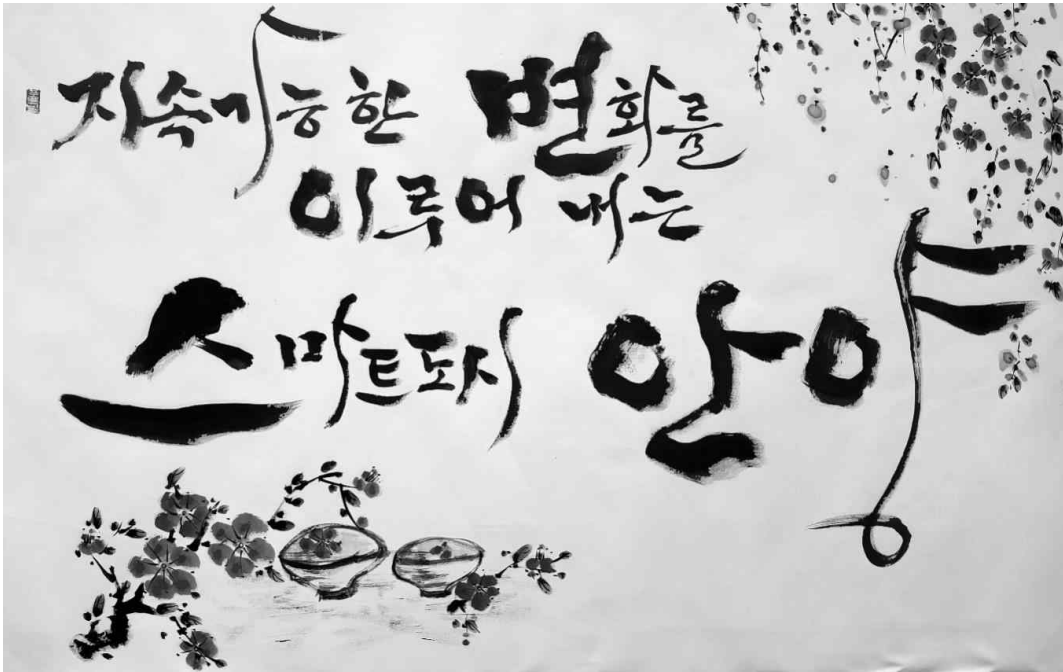 지속가능한 변화를
이루어 내는
스마트도시 안양